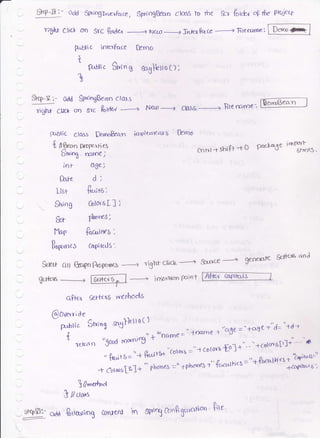 Step-IV:- add SpringInterface, SpringBean class to the Src folder of the project
right click on src folder → New → Interface → Filename: Demo
public interface Demo
{
public String sayHello();
}
Step-V:- add SpringBean class
right click on src folder → New → class → File name: DemoBean
public class DemoBean implements Demo
{ //Bean properties
String name;
int age;
Date d;
List fruits;
String colors[];
Set phones;
Map faculties;
Properties capitals;
cntrl + shift + O package import
Select all Bean Properties → right click → Source → generate Setters and
getters → Setters → insertion point After capitals
after setters methods
@Override
public String sayHello()
{
return "good morning" + "name="+name+"age="+age+"d="+d+
"fruits="+fruits+"colors="+colors[0]+
+colors[1]+
+colors[2]+"phones="+phones+"faculties="+faculties+"capitals="
+capitals;
}//method
}//class
add following content in spring configuration file.